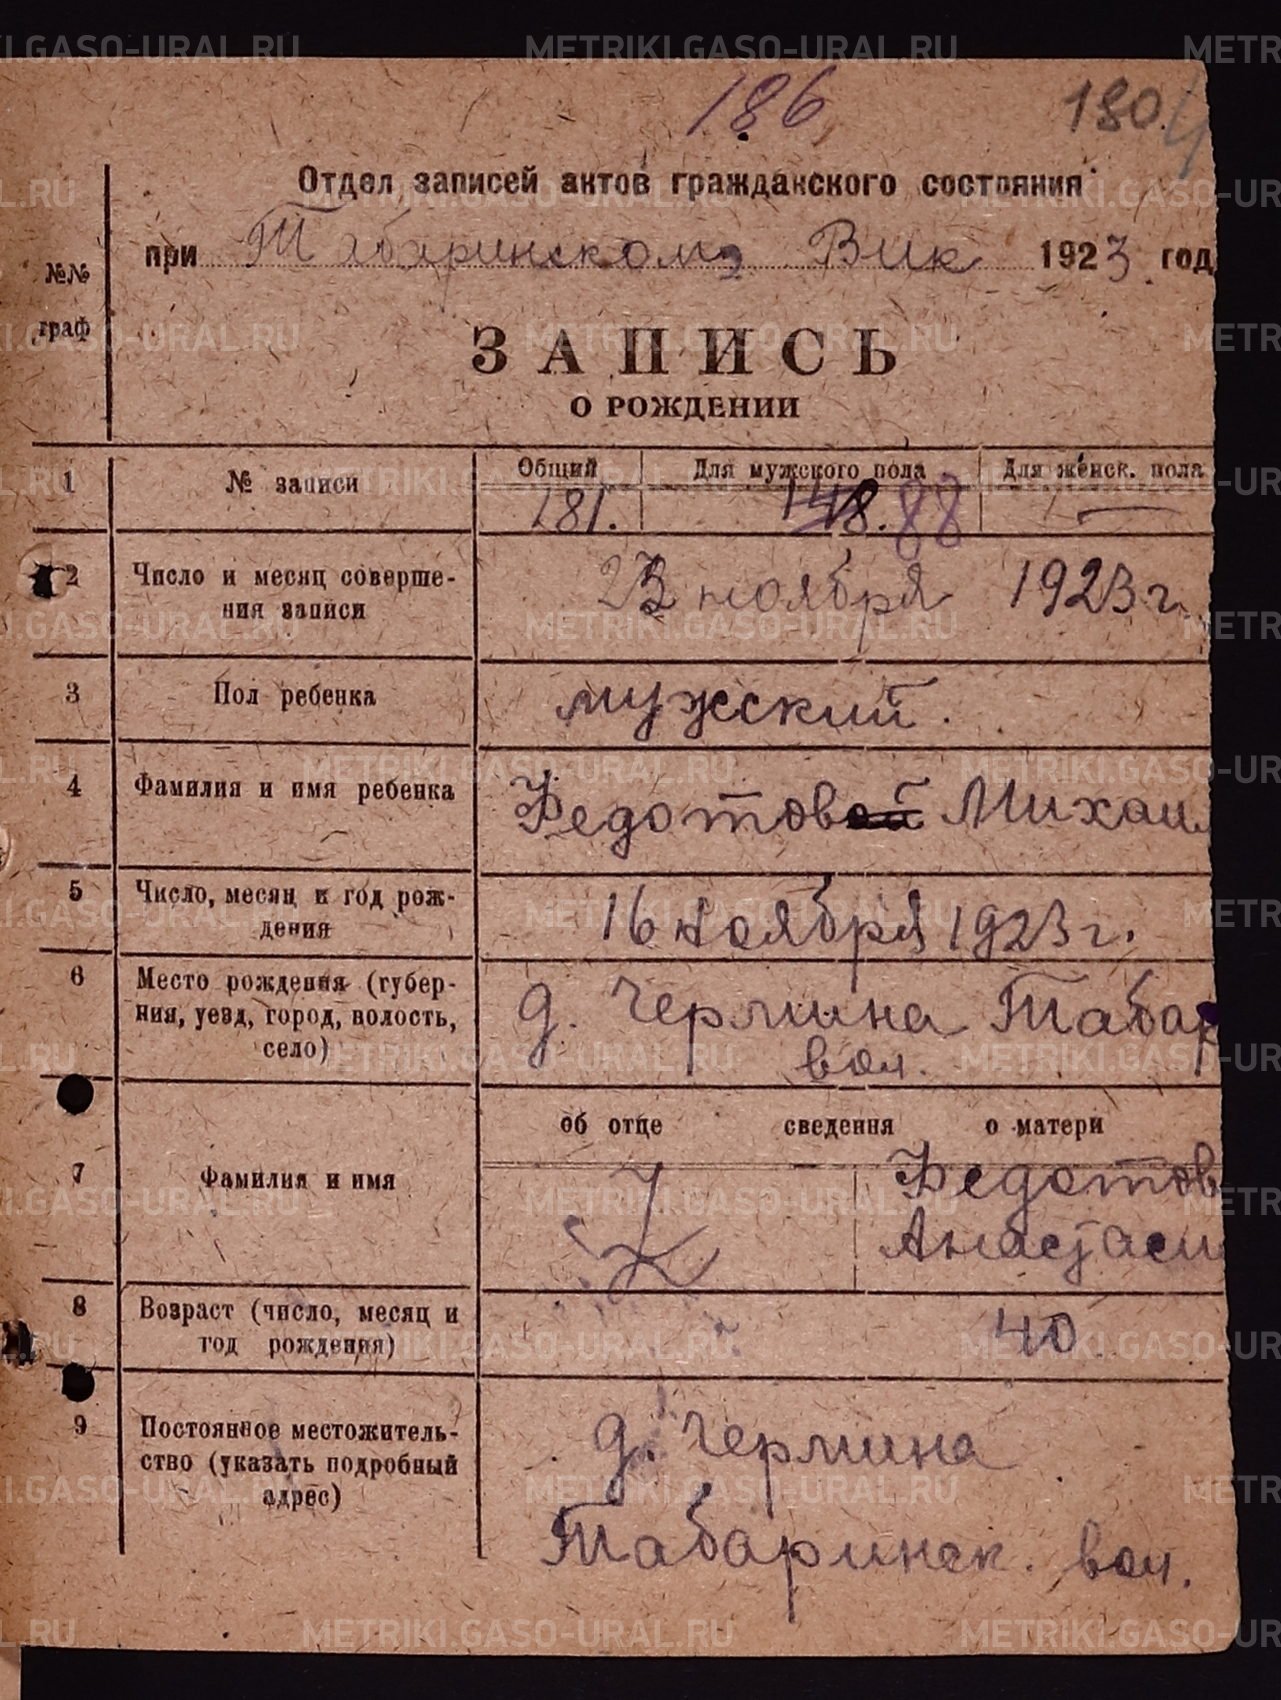 186
180.
Отдел записей актов гражданского состояния
при Табаринскомъ Вик 1923 год
№№ граф
ЗАПИСЬ
О РОЖДЕНИИ
1 № записи Общий Для мужского пола Для женск. пола
181. 148. 88 —
2 Число и месяц соверше-
ния записи
23 ноября 1923 г.
3 Пол ребенка мужский.
4 Фамилия и имя ребенка Федотовой Михаил
5 Число, месяц и год рож-
дения
16 ноября 1923 г.
6 Место рождения (губер-
ния, уезд, город, волость,
село)
д. Чермина Табар
вол.
об отце сведения о матери
7 Фамилия и имя
Z
Федотов
Анастаси
8 Возраст (число, месяц и
год рождения)
40
9 Постоянное местожитель-
ство (указать подробный
адрес)
д. Чермина
Табаринск. вол.
METRIKI.GASO-URAL.RU